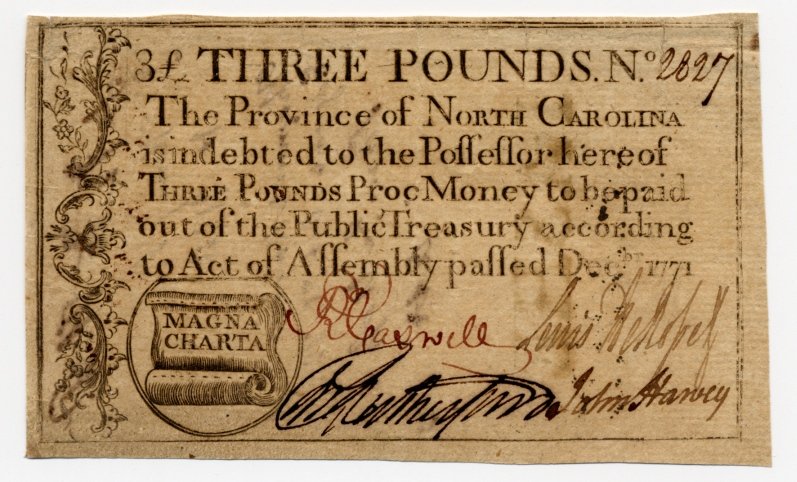 3£ THREE POUNDS. N.º 2827
The Province of NORTH CAROLINA
is indebted to the Poſſeſſor hereof
THREE POUNDS Proc Money to be paid
out of the Public Treasury according
to Act of Aſſembly passed Decbr 1771
MAGNA
CHARTA
RCaswell Lewis
Rutherfurd John Harvey